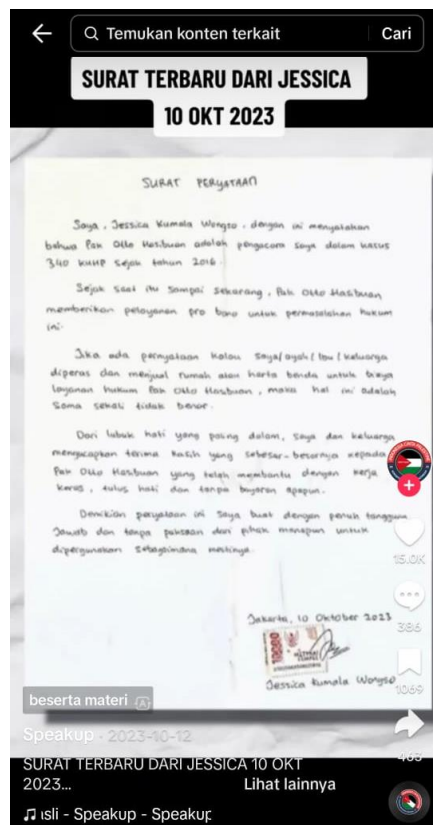 Temukan konten terkait
Cari
SURAT TERBARU DARI JESSICA
10 OKT 2023
SURAT PERYATAAN
Saya, Jessica Kumala Wongso, dengan ini menyatakan
bahwa Pak Otto Hasibuan adalah pengacara saya dalam kasus
340 KUHP sejak tahun 2016.
Sejak saat itu sampai sekarang, Pak Otto Hasibuan
memberikan pelayanan pro bono untuk permasalahan hukum
ini.
Jika ada pernyataan kalau saya/ayah/ibu/keluarga
diperas dan menjual rumah atau harta benda untuk biaya
layanan hukum Pak Otto Hasibuan, maka hal ini adalah
sama sekali tidak benar.
Dari lubuk hati yang paling dalam, saya dan keluarga
mengucapkan terima kasih yang sebesar-besarnya kepada
Pak Otto Hasibuan yang telah membantu dengan kerja
keras, tulus hati dan tanpa bayaran apapun.
Demikian peryataan ini saya buat dengan penuh tanggung
Jawab dan tanpa paksaan dari pihak manapun untuk
dipergunakan sebagaimana mestinya.
Jakarta, 10 Oktober 2023
10000
Jessica Kumala Wongso
15.0K
386
1069
463
beserta materi
Speakup · 2023-10-12
SURAT TERBARU DARI JESSICA 10 OKT
2023... Lihat lainnya
asli - Speakup - Speakup